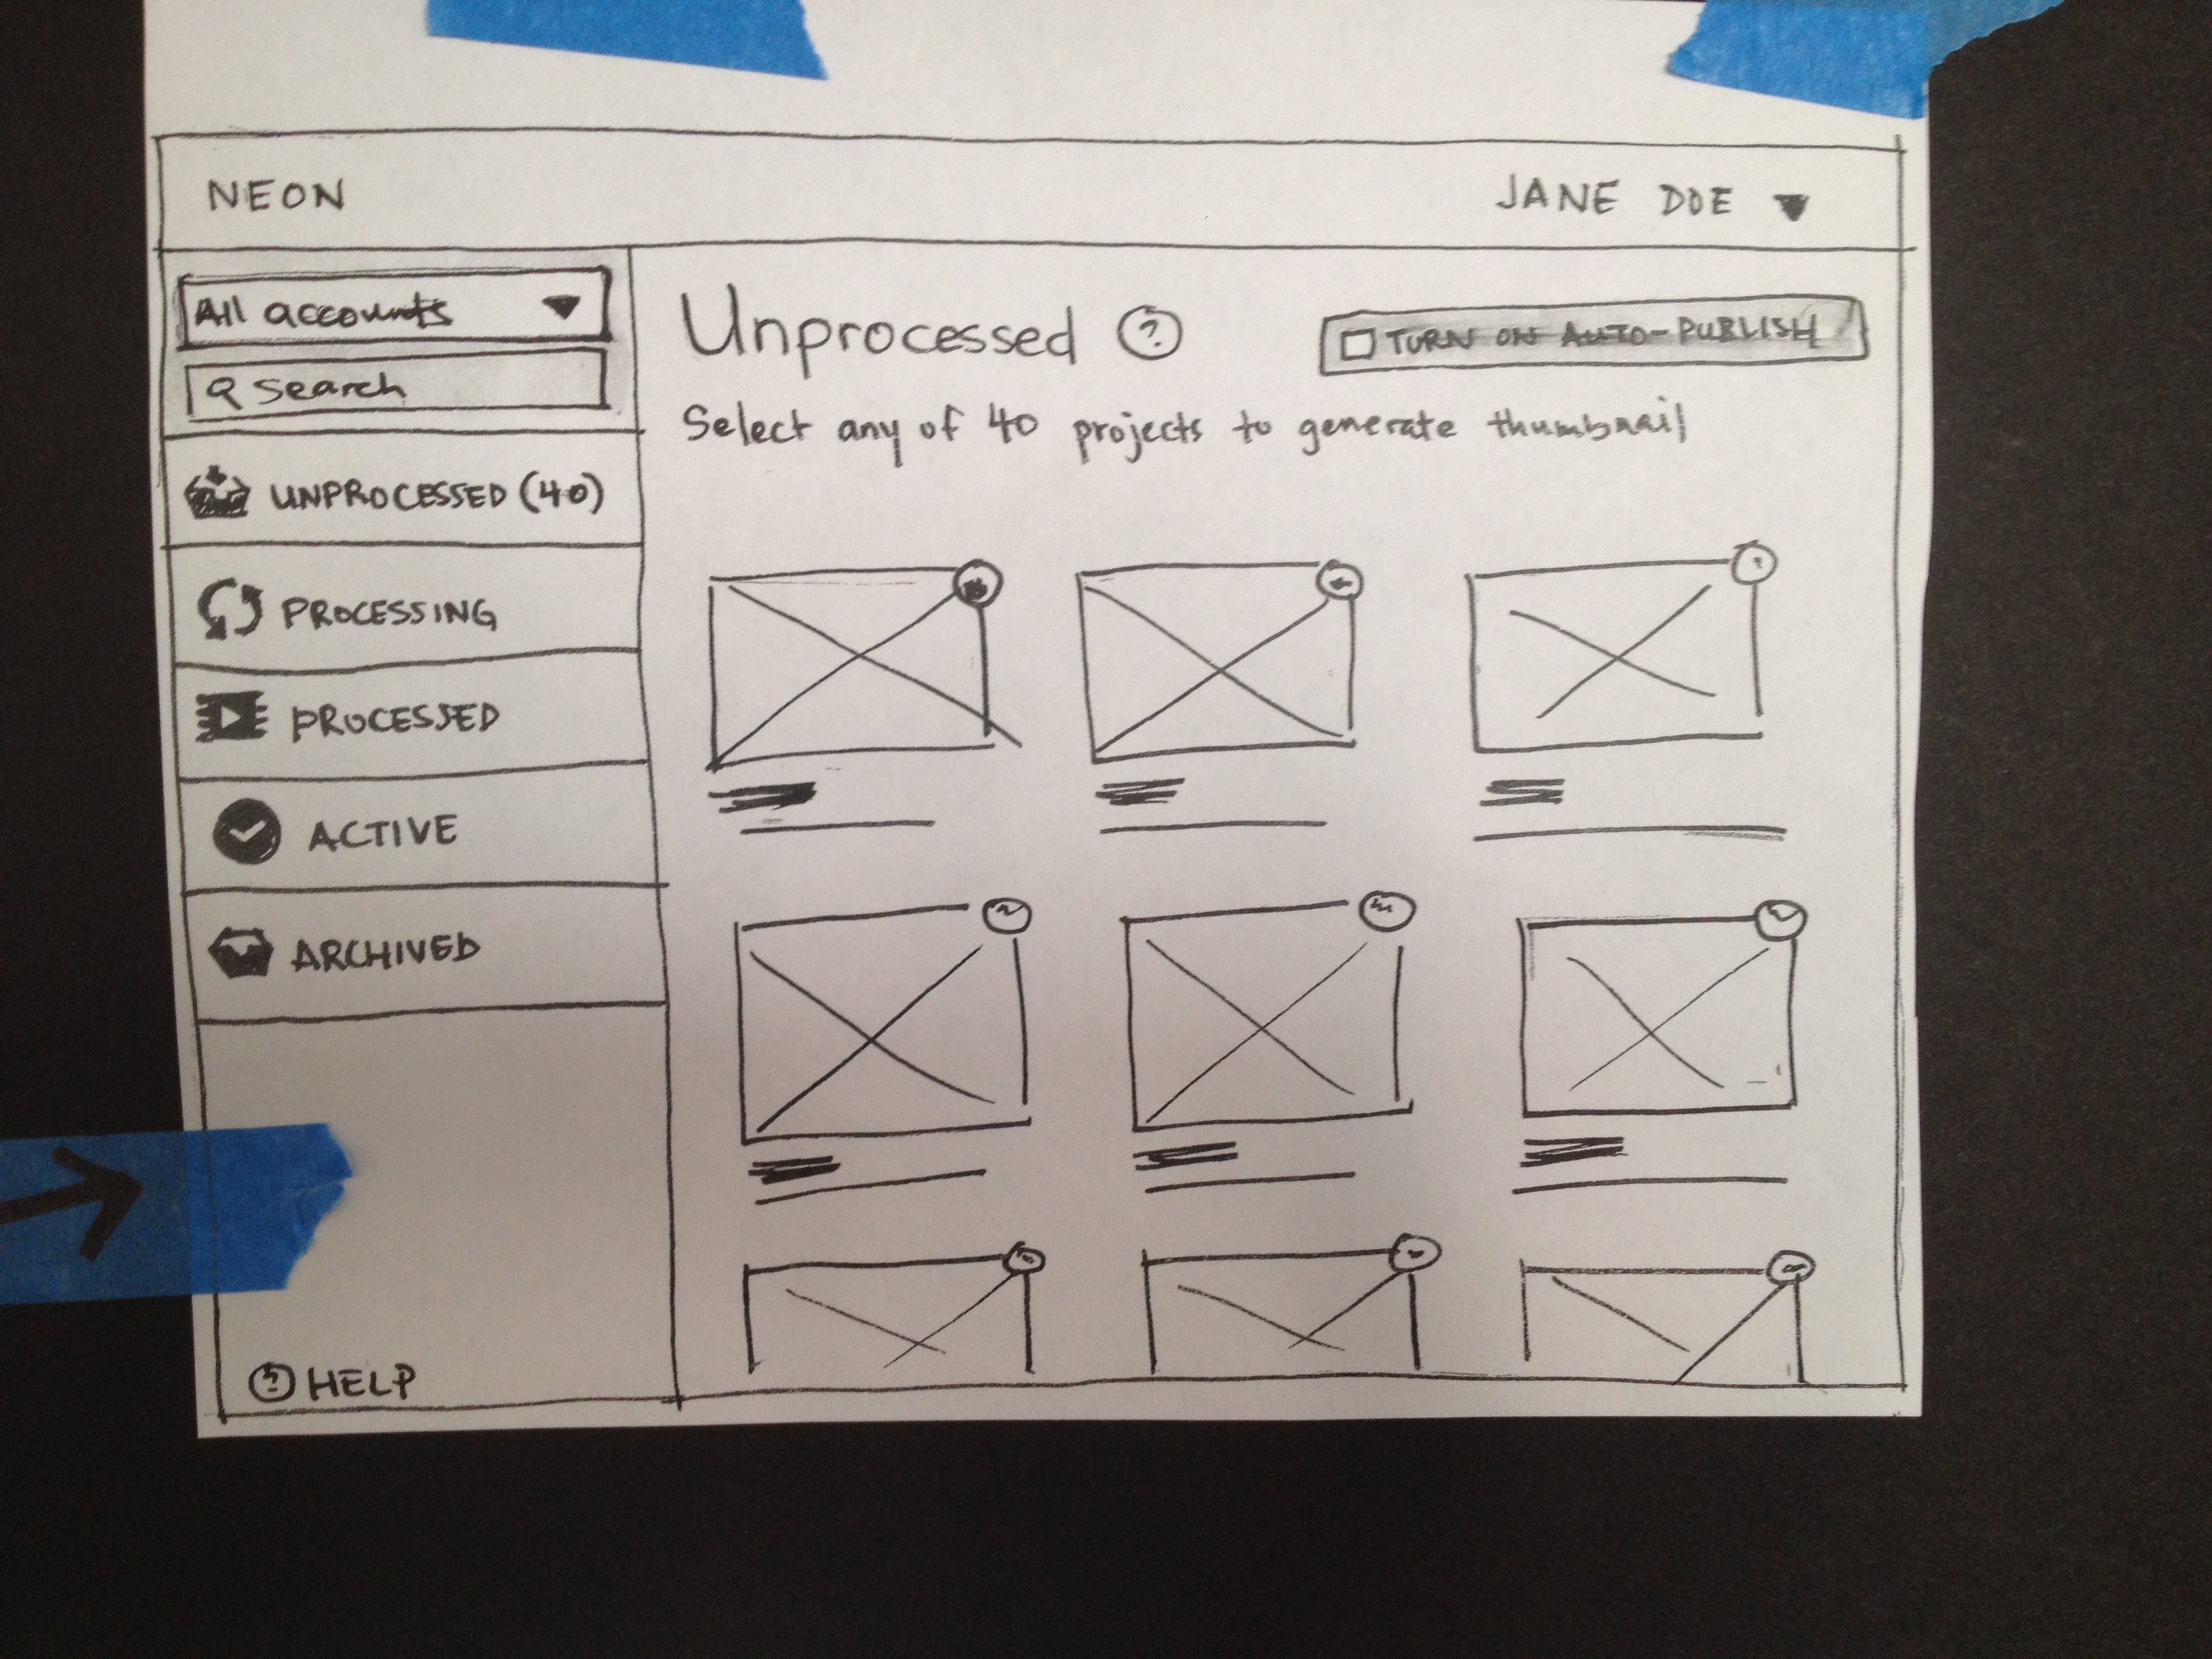 NEON
JANE DOE
All accounts
Search
UNPROCESSED (40)
PROCESSING
PROCESSED
ACTIVE
ARCHIVED
? HELP
Unprocessed ?
TURN ON AUTO-PUBLISH
Select any of 40 projects to generate thumbnail